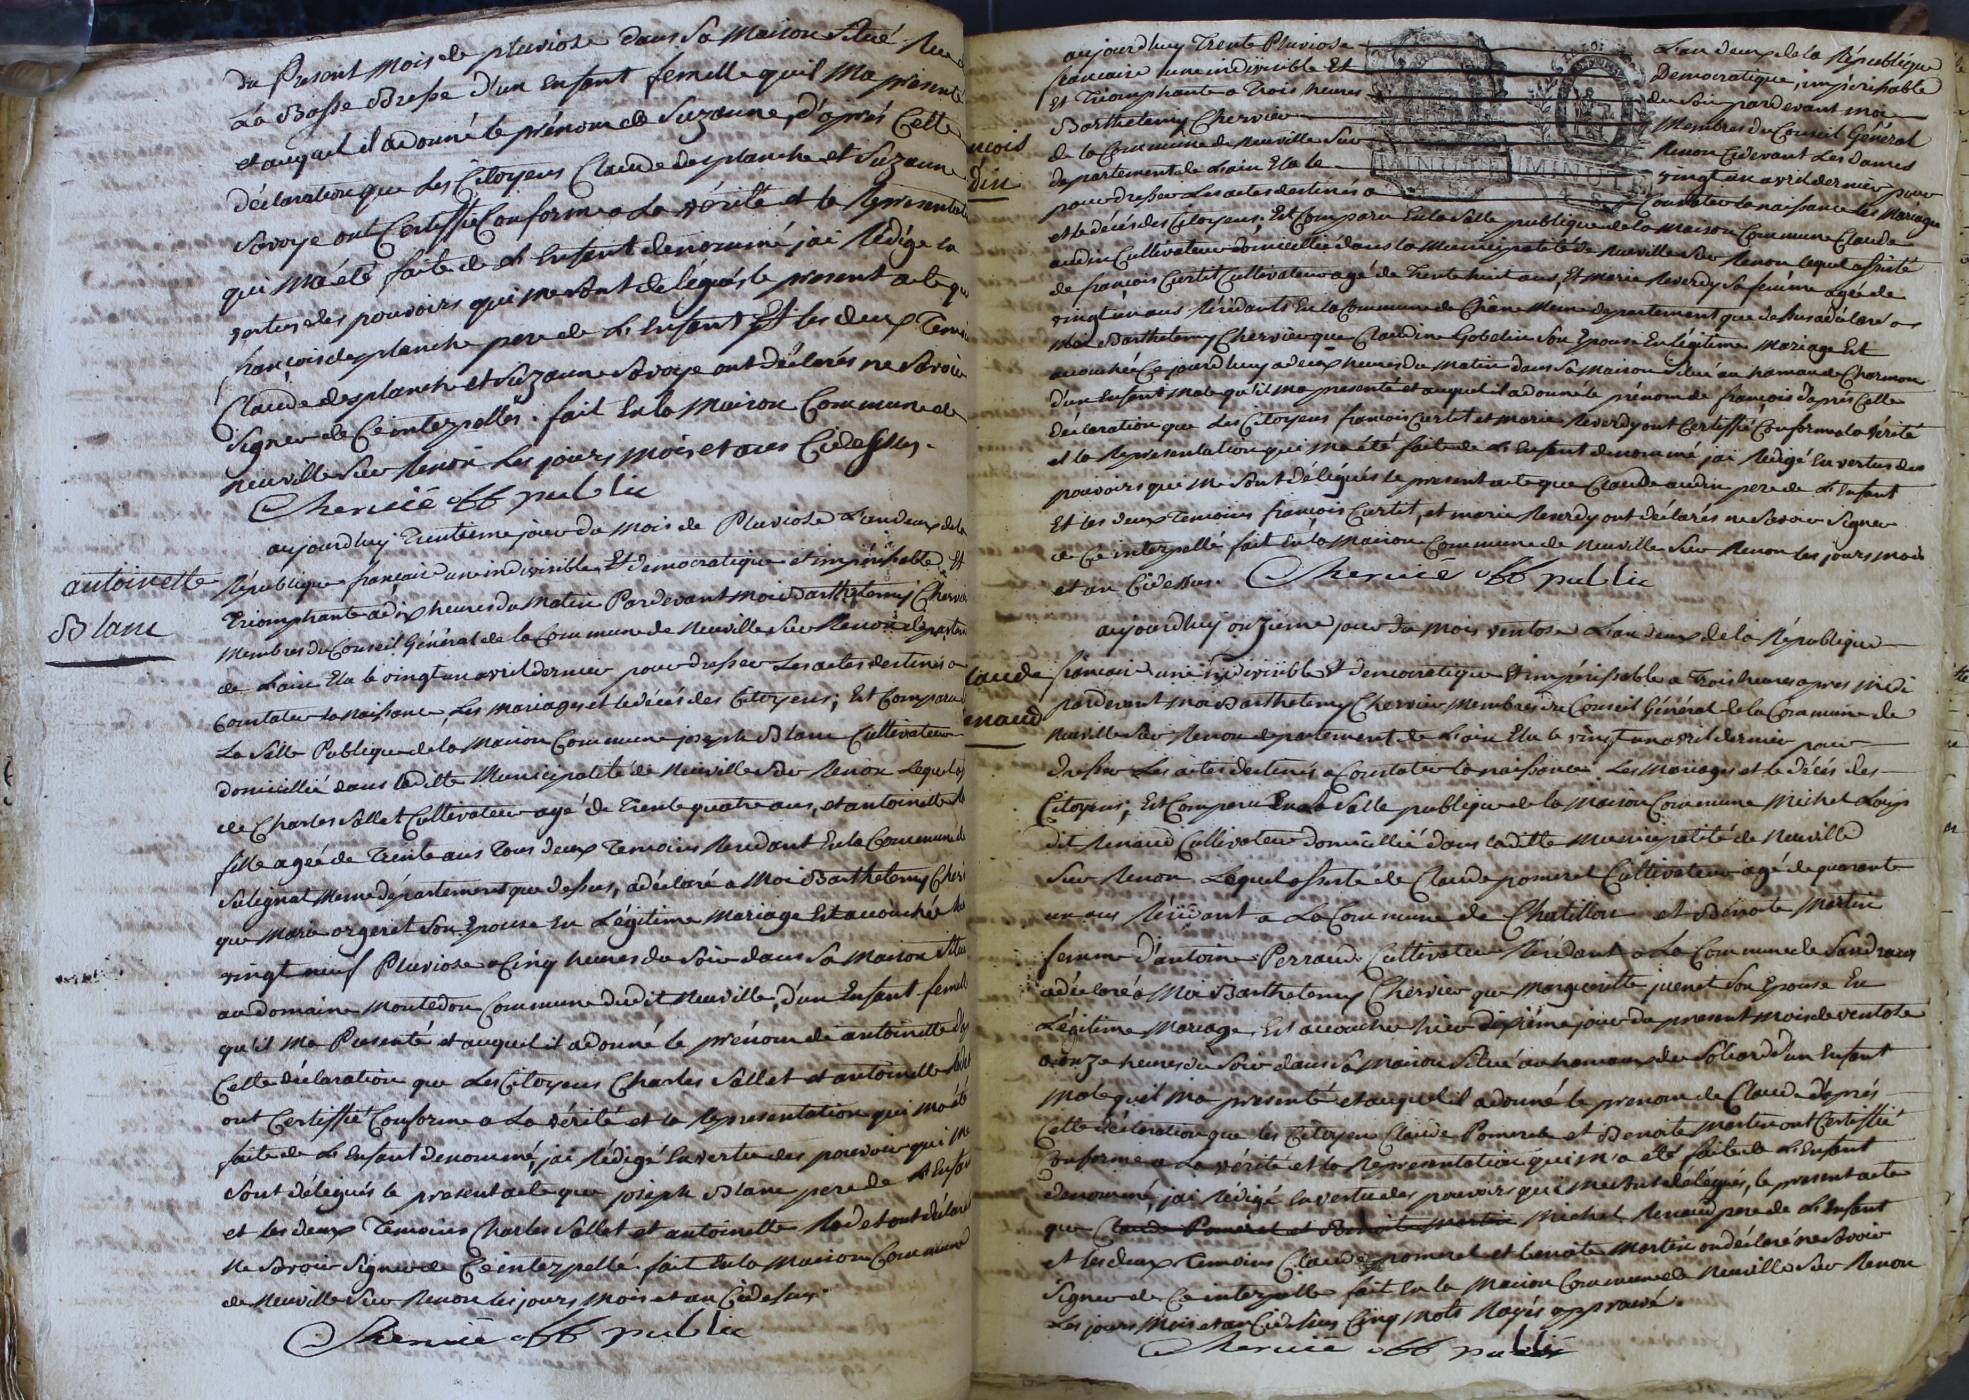 du Present Mois de pluviose dans Sa Maison Situé
La Basse Bresse d'un Enfant femelle quil Ma présenté
et auquel il a donné le prénom de Suzanne, d'après Cette
déclaration que Les Citoyens Claude desplanche et Suzanne
Savoye ont Certiffié Conforme a La vérité et la Representation
qui M'a été faite de L'Enfant denommé j'ai Rédigé En
vertu des pouvoirs qui me sont delégués le present acte que
françois desplanche pere de L'Enfant Et les deux Temoins
Claude desplanche et Suzanne Savoye ont déclarés ne Savoir
Signer de Ce interpellés. fait En la Maison Commune de
Neuville Sur Renon Les jours Mois et an Cidessus.
Chervié off public
antoinette
Blanc
aujourdhuy Trentieme jour du Mois de Pluviose L'an deux de la
République française une indivisible Et democratique et impérissable Et
Triomphante a dix heures du Matin Pardevant Moi Barthelemy Chervier
Membres du Conseil Général de la Commune de Neuville Sur Renon departement
de L'ain Elu le vingt un avril dernier pour dresser Les actes destinés a
Constater La Naissance, Les Mariages et le décés des Citoyens; Est Comparu
La Salle Publique de la Maison Commune joseph Blanc Cultivateur
domicillié dans laditte Municipalité de Neuville Sur Renon Lequel
de Charles Sallet Cultivateur agé de Trente quatre ans, et antoinette
fille agée de Trente ans Tous deux Temoins Residant En la Commune de
Sulignat Meme département que dessus, a déclaré a Moi Barthelemy Chervier
que Marie orgeret Son Epouse En Légitime Mariage Est accouchée
vingt neuf Pluviose a Cinq heures du Soir dans Sa Maison Située
au domaine Montedon Commune dudit Neuville, d'un Enfant femelle
qu'il Ma Presenté et auquel il a donné le prénom de antoinette
Cette déclaration que Les Citoyens Charles Sallet et antoinette
ont Certiffié Conforme a La vérité et la Representation qui Ma été
faite de L'Enfant denommé, j'ai Rédigé En vertu des pouvoir qui Me
Sont délégués le present acte que joseph Blanc pere de L'Enfant
et les deux Temoins Charles Sallet et antoinette ont déclaré
Ne Savoir Signer de Ce interpellé. fait En la Maison Commune
de Neuville Sur Renon les jours Mois et an Cidessus.
Chervié off public
aujourdhuy Trente Pluviose L'an deux de la République
francaise une indivisible Et Democratique, impérissable
Et Triomphante a Trois heures du Soir pardevant moi
Barthelemy Chervier Membres du Conseil Général
de la Commune de Neuville Sur Renon Cidevant Les Dames
departement de L'ain Elu le vingt un avril dernier pour
pour dresser Les actes destinés a Constater la naissance les Mariages
MINUTE MINUTE
et le décés des Citoyens; Est Comparu En la Salle publique de la Maison Commune Claude
audin Cultivateur domicillié dans la Municipalité de Neuville Sur Renon lequel assisté
de françois Curtit Cultivateur agé de Trente huit ans, Et Marie Reverdy Sa femme agée de
vingt un ans Résidants En la Commune de Chane Meme departement que dessus a déclaré a
Moi Barthelemy Chervier que Claudine Gobelin Son Epouse En légitime Mariage Est
accouchée Ce jourdhuy a deux heures du Matin dans Sa Maison Situé au hamau de Charmon
d'un Enfant Mâle qu'il Ma presenté et auquel il a donné le prénom de françois d'après Cette
déclaration que Les Citoyens françois Curtit et marie Reverdy ont Certiffié Conforme a La vérité
et la Représentation qui Ma été faite de L'Enfant denommé j'ai Rédigé En vertus des
pouvoirs qui Me Sont délégués le present acte que Claude audin pere de L'Enfant
Et les deux Temoins françois Curtit, et marie Reverdy ont déclarés ne Savoir Signer
de Ce interpellé fait En la Maison Commune de Neuville Sur Renon les jours mois
et an Cidessus. Chervié off public
aujourdhuy onzieme jour du Mois ventose L'an deux de la République
francaise une indivisible Et democratique Et impérissable a Trois heures apres midi
pardevant Moi Barthelemy Chervier Membres du Conseil Général de la Commune de
Neuville Sur Renon departement de L'ain Elu le vingt un avril dernier pour
Dresser Les actes destinés a Constater la naissance Les Mariages et le décés des
Citoyens; Est Comparu En La Salle publique de la Maison Commune Michel Loup
dit Renaud Cultivateur domicillié dans laditte Municipalité de Neuville
Sur Renon Lequel assisté de Claude pomeret Cultivateur agé de quarante
un ans Résidant a La Commune de Chatillon et Benoite Martin
femme d'antoine Perraud Cultivateur Résidant a La Commune de Sandrans
a déclaré a Moi Barthelemy Chervier que Margueritte juenet Son Epouse En
Légitime Mariage Est accouchée hier dixième jour du present Mois de ventose
a onze heures du Soir dans Sa Maison Situé au hamau du Soliard d'un Enfant
Mâle quil Ma présenté et auquel il a donné le prenom de Claude d'après
Cette déclaration que les Citoyens Claude Pomeret et Benoite Martin ont Certiffié
Conforme a La vérité et la Représentation qui M'a été faite de L'Enfant
denommé, j'ai Rédigé En vertu des pouvoirs qui me Sont délégués, le present acte
que Claude Pomeret et Benoite Martin Michel Renaud pere de L'Enfant
et les deux Temoins Claude pomeret et benoite Martin on déclaré ne Savoir
Signer de Ce interpellé fait En la Maison Commune de Neuville Sur Renon
Les jours Mois et an Cidessus Cinq Mots Rayés approuvé.
Chervié off public